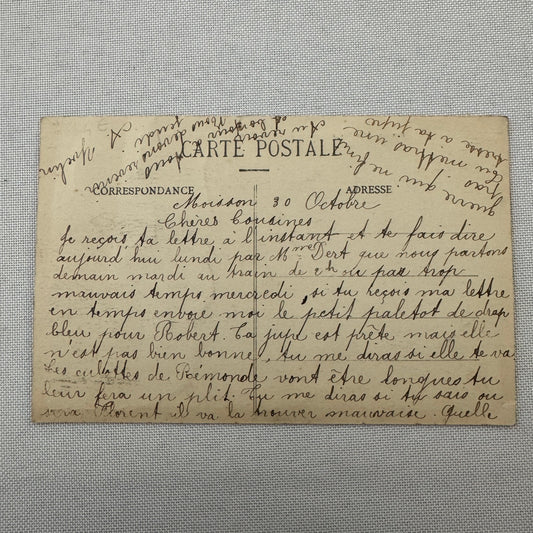 CARTE POSTALE
CORRESPONDANCE
ADRESSE
Moisson 30 Octobre
Chères Cousines
Je reçois ta lettre à l'instant et te fais dire
aujourd'hui lundi par Mme Dert que nous partons
demain mardi au train de ou par trop
mauvais temps mercredi, si tu reçois ma lettre
en temps envoie moi le petit paletot de drap
bleu pour Robert. Ta jupe est prête mais elle
n'est pas bien bonne, tu me diras si elle te va
Les culottes de Rémonde vont être longues tu
leur fera un plit. Tu me diras si tu sais ou
sera Florent il va la trouver mauvaise. Quelle
guerre qui ne finit
pas
Tu mettras une
tresse à ta jupe
Au revoir
Nous
devons revenir
jeudi
A. Yvelin